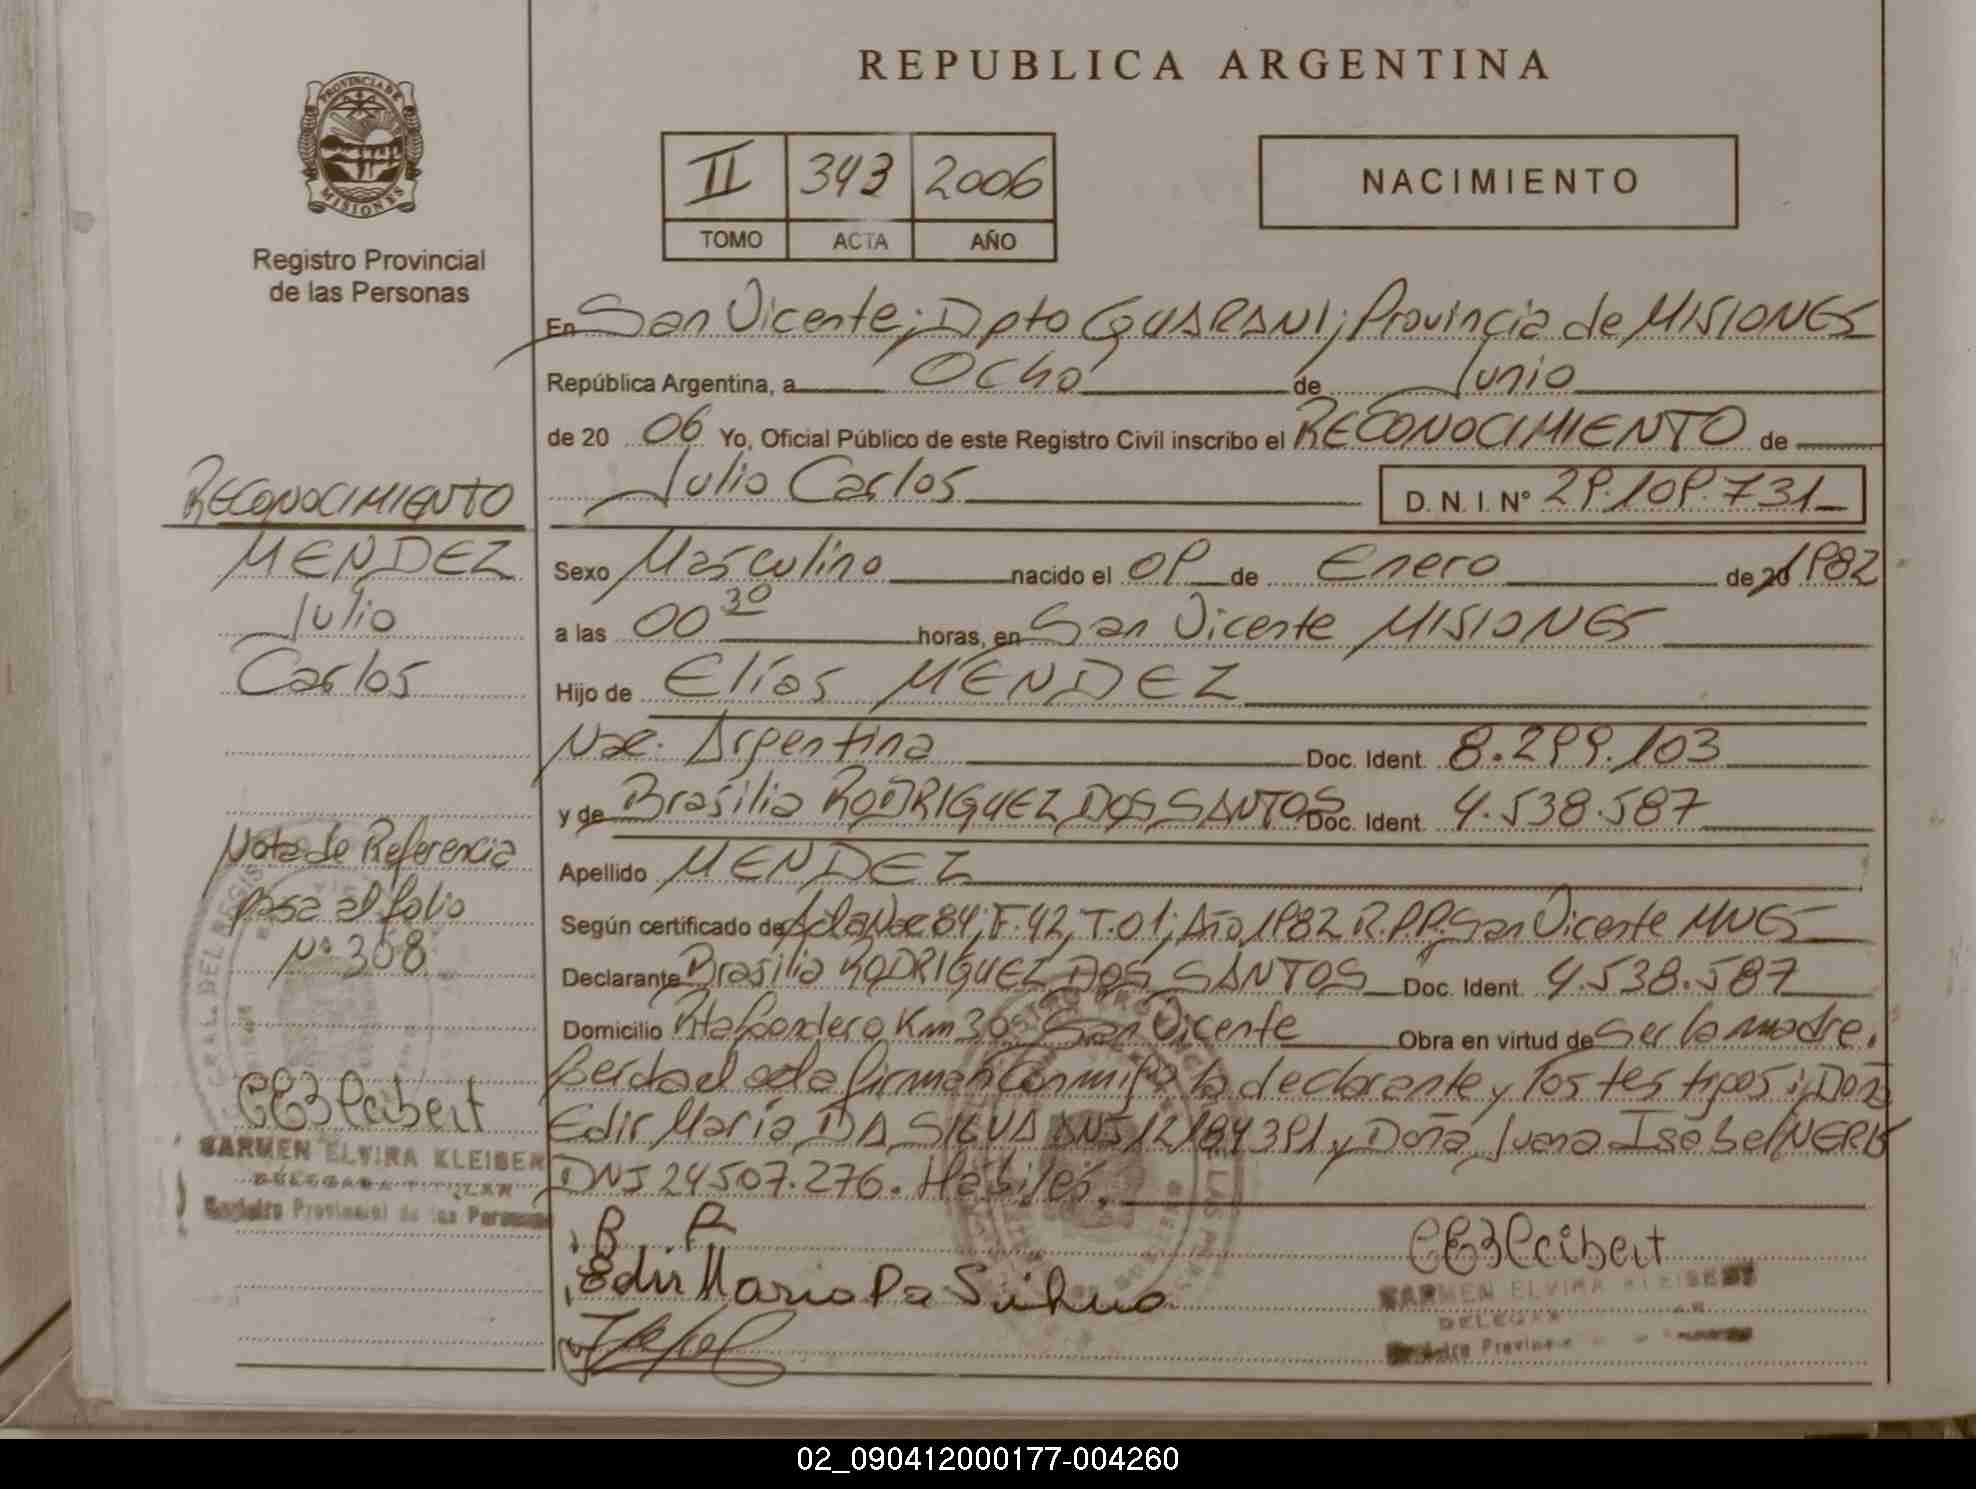 REPUBLICA ARGENTINA
PROVINCIA DE
MISIONES
Registro Provincial
de las Personas
II 343 2006
TOMO ACTA AÑO
NACIMIENTO
En San Vicente; Dpto GUARANI; Provincia de MISIONES
República Argentina, a Ocho de Junio
de 20 06 Yo, Oficial Público de este Registro Civil inscribo el RECONOCIMIENTO de
Julio Carlos D. N. I. Nº 29.109.731
Sexo Masculino nacido el 09 de Enero de 20 1982
a las 00 30 horas, en San Vicente MISIONES
Hijo de Elías MENDEZ
Nac. Argentina Doc. Ident. 8.299.103
y de Brasilia RODRIGUEZ DOS SANTOS Doc. Ident. 4.538.587
Apellido MENDEZ
Según certificado de Acta Nac 84; F. 42, T. 01; Año 1982 R.P.P. San Vicente MNES
Declarante Brasilia RODRIGUEZ DOS SANTOS Doc. Ident. 4.538.587
Domicilio Km 30 San Vicente Obra en virtud de ser la madre.
firman conmigo la declarante y los testigos: Doña
Edir María DA SILVA DNI 12184391 y Doña Juana Isabel NERIS
DNI 24507.276. Hábiles.
B R
Edir Maria Da Silva
CARMEN ELVIRA KLEIBERT
Registro Provincial
RECONOCIMIENTO
MENDEZ
Julio
Carlos
Nota de Referencia
pasa al folio
Nº 308
CARMEN ELVIRA KLEIBER
DELEGADA TITULAR
Registro Provincial de las Personas
02_090412000177-004260